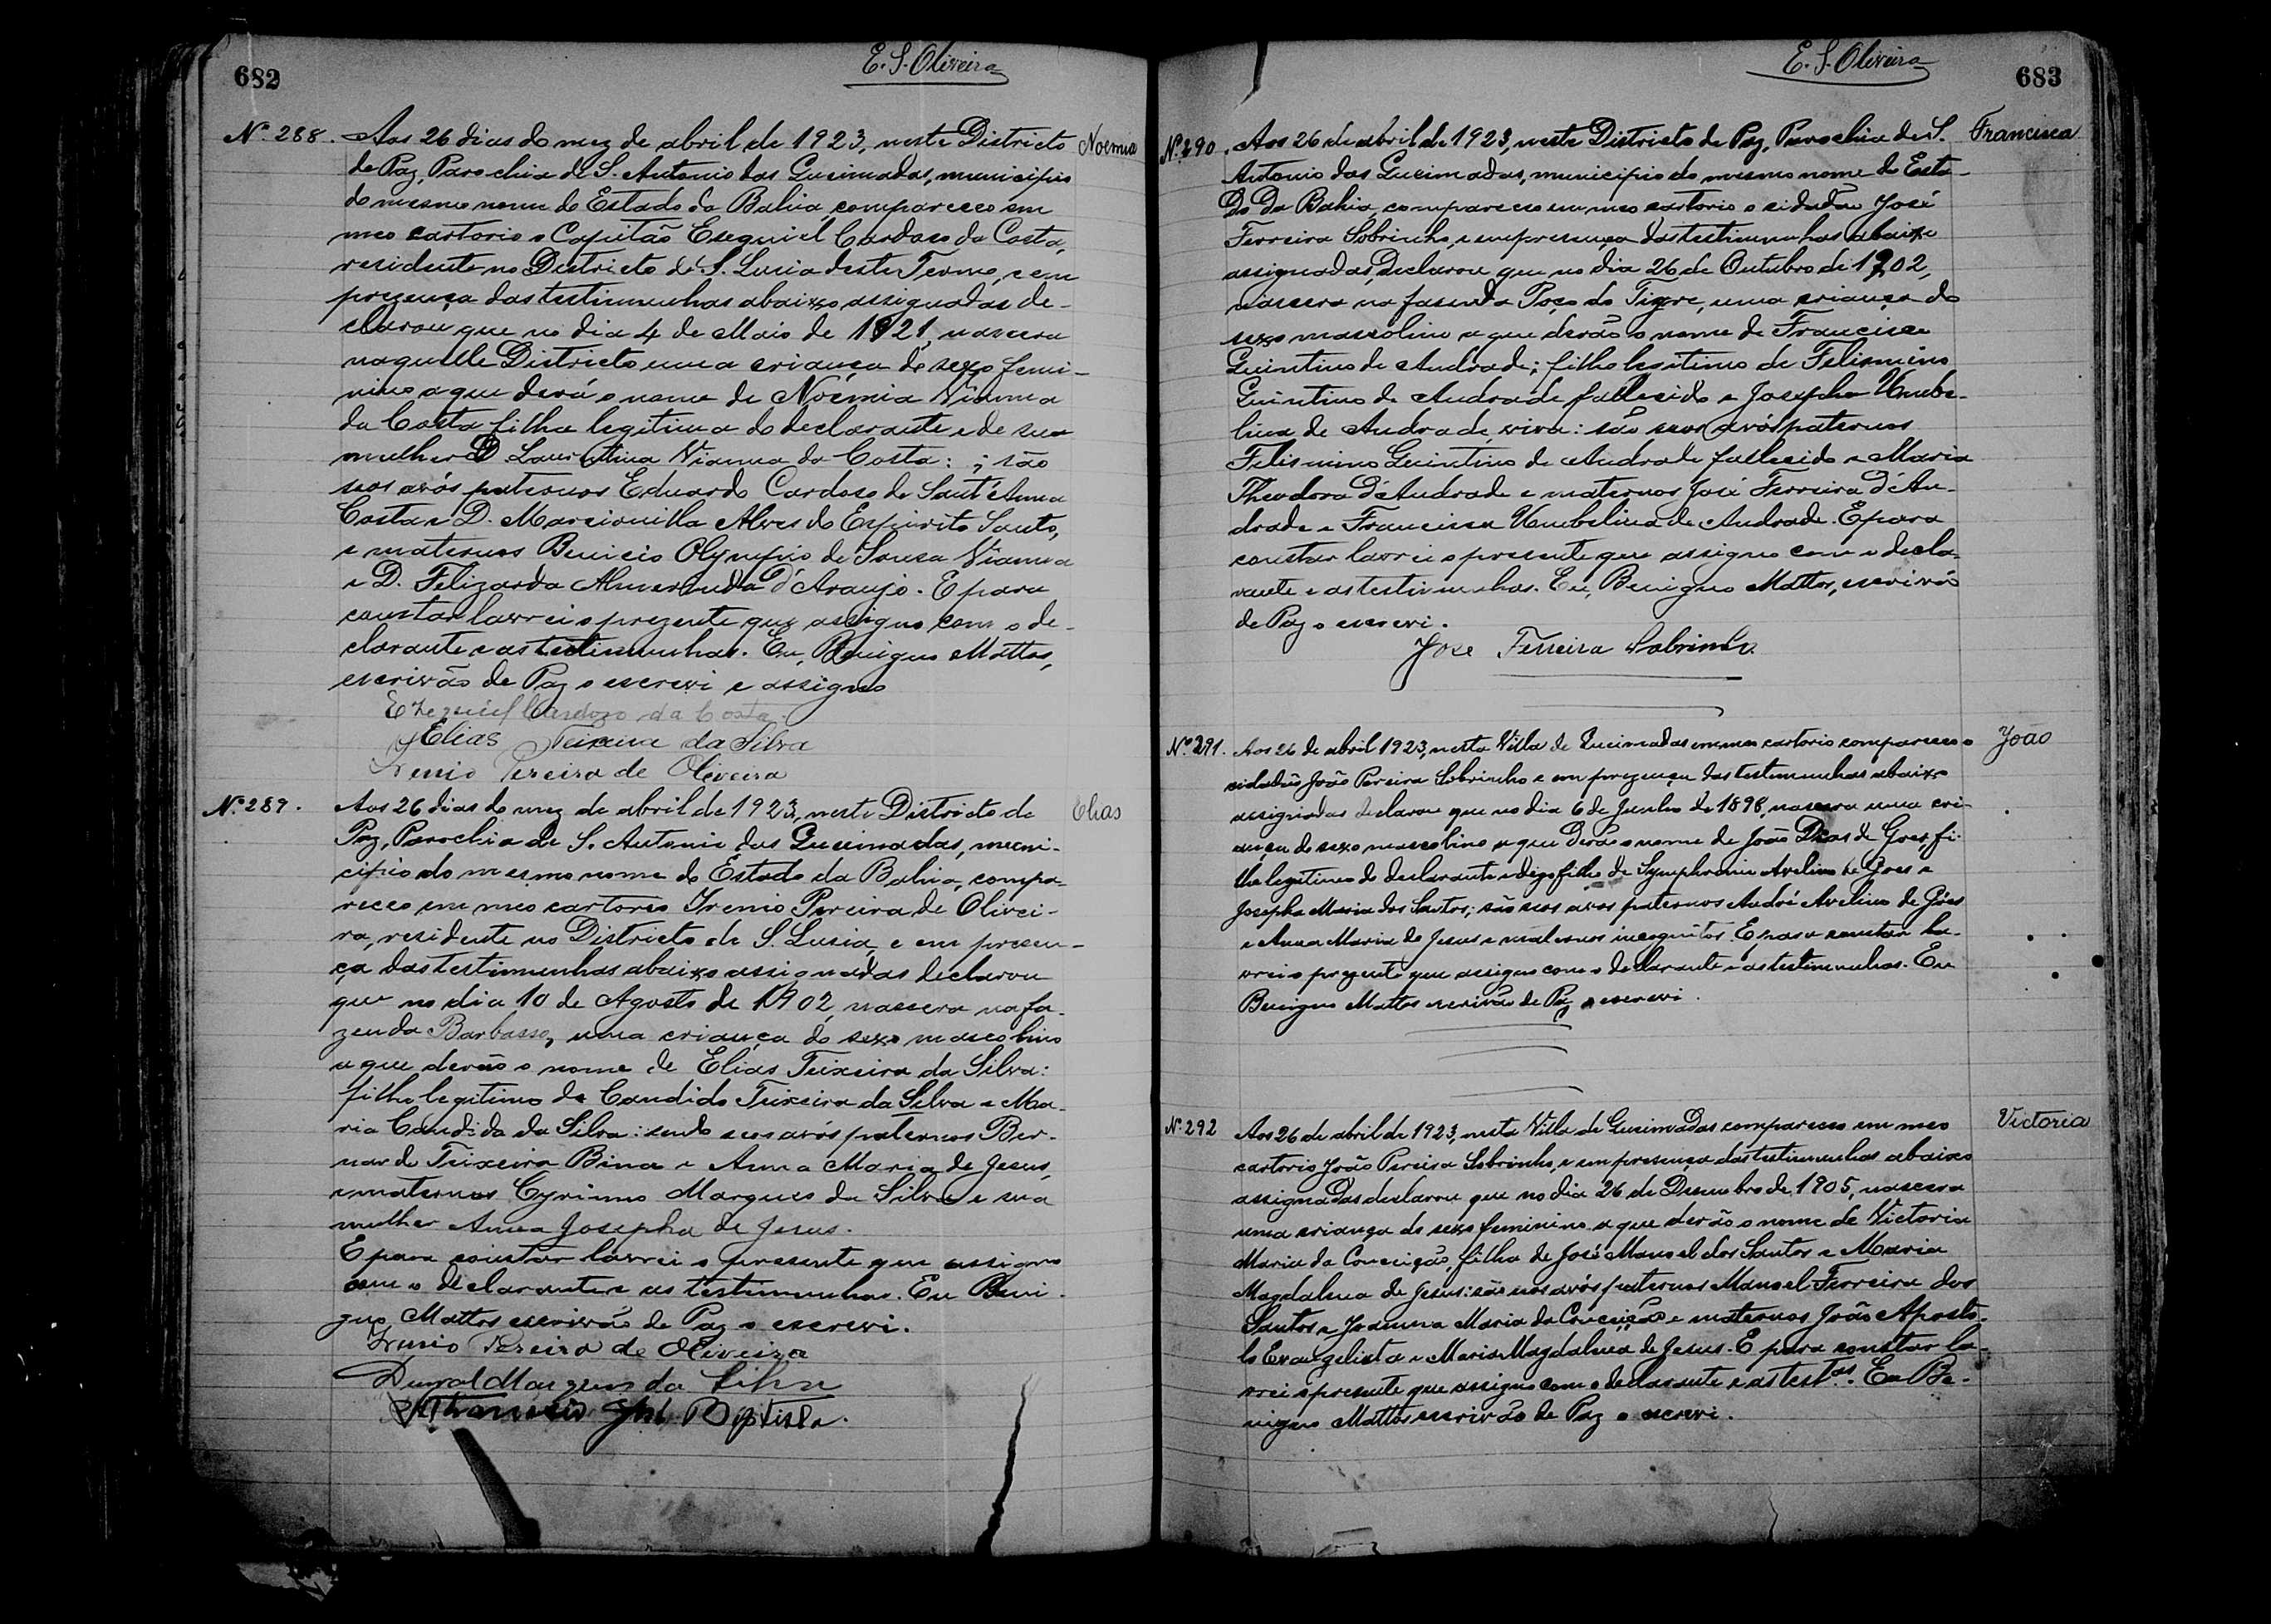 682
E. S. Oliveira
Nº 288. Aos 26 dias do mez de abril de 1923, neste Districto Noemia
de Paz, Parochia de S. Antonio das Queimadas, municipio
do mesmo nome do Estado da Bahia, compareceo em
meo cartorio o Capitão Esequiel Cardoso da Costa,
residente no Districto de S. Luzia deste Termo, e em
prezença das testimunhas abaixo assignadas de-
clarou que no dia 4 de Maio de 1921, nascera
naquelle Districto uma criança do sexo femi-
nino a que derá o nome de Noêmia Vianna
da Costa filha legitima do declarante e de sua
mulher D. Laurentina Vianna da Costa: ; são
seos avós paternos Eduardo Cardoso de Sant'Anna
Costa e D. Marcionilla Alves do Espirito Santo,
e maternos Benicio Olympio de Souza Vianna
e D. Felizarda Almerinda d'Araujo. E para
constar lavrei o prezente que assigno com o de-
clarante e as testimunhas. Eu, Benigno Mattos,
escrivão de Paz o escrevi e assigno
Ezequiel Cardozo da Costa.
Elias Teixeira da Silva
Irenio Pereira de Oliveira
Nº 289. Aos 26 dias do mez de abril de 1923, neste Districto de Elias
Paz, Parochia de S. Antonio das Queimadas, muni-
cipio do mesmo nome do Estado da Bahia, compa-
receo em meo cartorio Irenio Pereira de Olivei-
ra, residente no Districto de S. Lusia, e em presen-
ça das testimunhas abaixo assignadas declarou
que no dia 10 de Agosto de 1902, nascera na fa-
zenda Barbasso, uma criança do sexo mascolino
a que derão o nome de Elias Teixeira da Silva:
filho legitimo de Candido Teixeira da Silva e Ma-
ria Candida da Silva: sendo seos avós paternos Ber-
nardo Teixeira Bina e Anna Maria de Jesus,
e maternos Cyrinno Marques da Silva e sua
mulher Anna Josepha de Jesus.
E para constar lavrei o presente que assigno
com o declarante e as testimunhas. Eu Beni-
gno Mattos escrivão de Paz o escrevi.
Irenio Pereira de Oliveira
Durval Marques da Silva
José Baptista.
E. S. Oliveira
683
Nº 290. Aos 26 de abril de 1923, neste Districto de Paz, Parochia de S. Francisca
Antonio das Queimadas, municipio do mesmo nome do Esta-
do da Bahia, compareceo em meo cartorio o cidadão José
Ferreira Sobrinho, e em presença das testimunhas abaixo
assignadas, declarou que no dia 26 de Outubro de 1902,
nascera na fasenda Poço do Tigre, uma criança do
sexo mascolino a que derão o nome de Francisco
Quintino de Andrade; filho legitimo de Felismino
Quintino de Andrade fallecido e Josepha Umbe-
lina de Andrade, viva: são seos avós paternos
Felismino Quintino de Andrade fallecido e Maria
Theodora d'Andrade e maternos José Ferreira d'An-
drade e Francisca Umbelina de Andrade. E para
constar lavrei o presente que assigno com o decla-
rante e as testimunhas. Eu, Benigno Mattos, escrivão
de Paz o escrevi.
Jose Ferreira Sobrinho
Nº 291. Aos 26 de abril 1923, nesta Villa de Queimadas em meo cartorio compareceo o João
cidadão João Pereira Sobrinho e em prezença das testimunhas abaixo
assignadas declarou que no dia 6 de Junho de 1898, nascera uma cri-
ança do sexo mascolino a que derão o nome de João Dias de Goes, fi-
lho legitimo do declarante e digo filho de Symphronio Avelino de Goes e
Josepha Maria dos Santos; são seos avos paternos André Avelino de Góes
e Anna Maria de Jesus e maternos incognitos. E para constar la-
vrei o prezente que assigno com o declarante e as testimunhas. Eu
Benigno Mattos escrivão de Paz o escrevi.
Nº 292 Aos 26 de abril de 1923, nesta Villa de Queimadas compareceo em meo Victoria
cartorio João Pereira Sobrinho, e em presença das testimunhas abaixo
assignadas declarou que no dia 26 de Desembro de 1905, nascera
uma criança do sexo feminino a que derão o nome de Victoria
Maria da Conceição, filha de José Manoel dos Santos e Maria
Magdalena de Jesus: são seos avós paternos Manoel Ferreira dos
Santos e Joanna Maria da Conceição e maternos João Aposto-
lo Evangelista e Maria Magdalena de Jesus. E para constar la-
vrei o presente que assigno com o declarante e as testas. Eu Be-
nigno Mattos escrivão de Paz o escrevi.